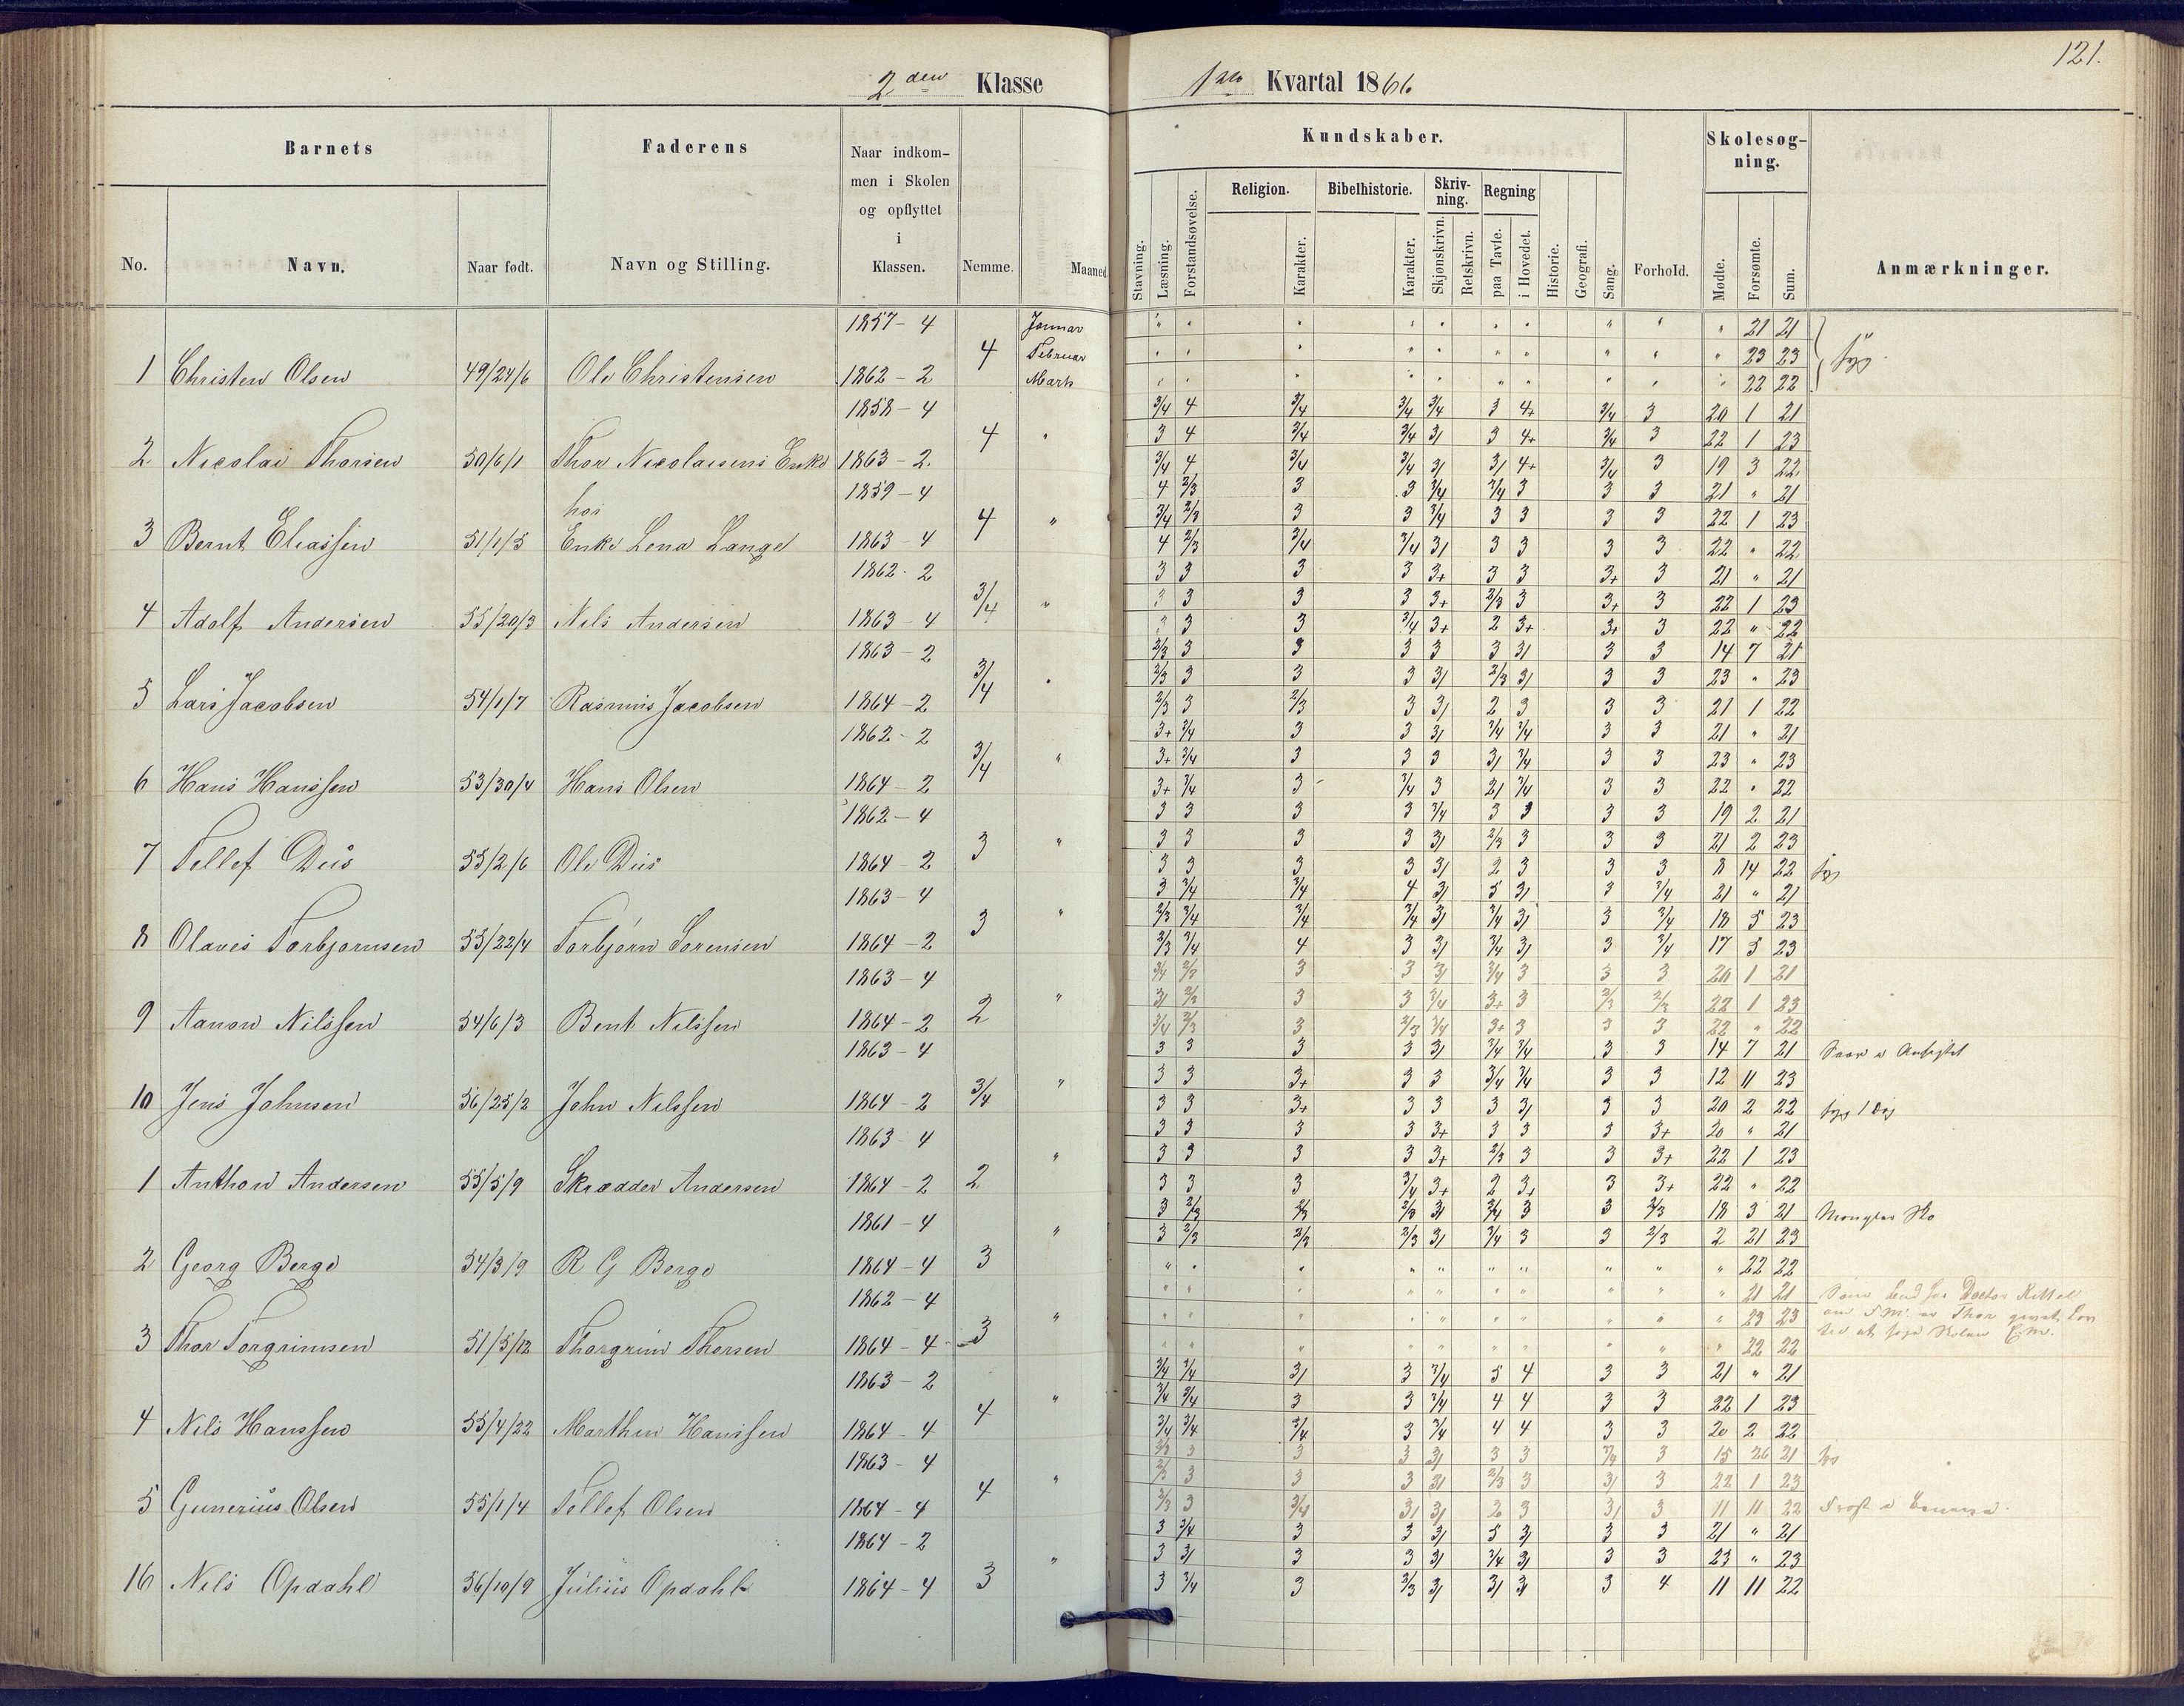 121.
2den Klasse 1ste Kvartal 1866
Barnets Faderens Naar indkom- Nemme. Maaned Kundskaber. Forhold. Skolesøg- Anmærkninger.
men i Skolen ning.
og opflyttet
i
No. Navn. Naar født. Navn og Stilling. Klassen.
Stavning. Læsning. Forstandsøvelse. Religion. Karakter. Bibelhistorie. Karakter. Skriv- ning. Skjønskrivn. Retskrivn. Regning paa Tavle. i Hovedet. Historie. Geografi. Sang. Mødte. Forsømte. Sum.
1857 - 4 Januar " 21 21
4 Februar " 23 23 syg
1 Christen Olsen 49/24/6 Ole Christensen 1862 - 2 Marts " 22 22
1858 - 4 3/4 4 3/4 3/4 3/4 3 4+ 3/4 3 20 1 21
4 " 3 4 3/4 3/4 3/ 3 4+ 3/4 3 22 1 23
2 Nicolai Thorsen 50/6/1 Thor Nicolaisens Enke 1863 - 2 3/4 4 3/4 3/4 3/ 3/ 4+ 3/4 3 19 3 22
1859 - 4 4 2/3 3 3 3/4 3/4 3 3 3 21 " 21
hos 4 " 3/4 2/3 3 3 3/4 3 3 3 3 22 1 23
3 Bernt Eliassen 51/1/5 Enke Lena Lange 1863 - 4 4 2/3 3/4 3/4 3/ 3 3 3 3 22 " 22
1862 - 2 3 3 3 3 3+ 3 3 3+ 3 21 " 21
3/4 " 3 3 3 3 3+ 2/3 3 3+ 3 22 1 23
4 Adolf Andersen 55/20/3 Nils Andersen 1863 - 4 3 3 3 3/4 3+ 2 3+ 3+ 3 22 " 22
1863 - 2 2/3 3 3 3 3 3 3/ 3 3 14 7 21
3/4 " 2/3 3 3 3 3/ 2/3 3/ 3 3 23 " 23
5 Lars Jacobsen 54/1/7 Rasmus Jacobsen 1864 - 2 2/3 3 2/3 3 3/ 2 3 3 3 21 1 22
1862 - 2 3+ 3/4 3 3 3/ 3/4 3/4 3 3 21 " 21
3/4 " 3+ 3/4 3 3 3 3/ 3/4 3 3 23 " 23
6 Hans Hanssen 53/30/4 Hans Olsen 1864 - 2 3+ 3/4 3 3/4 3 2/ 3/4 3 3 22 " 22
1862 - 4 3 3 3 3 3/4 3 3 3 3 19 2 21
3 " 3 3 3 3 3/ 2/3 3 3 3 21 2 23
7 Tellef Dus 55/2/6 Ole Dus 1864 - 2 3 3 3 3 3/ 2 3 3 3 8 14 22 syg
1863 - 4 3 3/4 3/4 4 3/ 5 3/ 3 3/4 21 " 21
3 " 2/3 3/4 3/4 3/4 3/ 3/4 3/ 3 3/4 18 5 23
8 Olaves Torbjornsen 55/22/4 Torbjörn Sorensen 1864 - 2 2/3 3/4 4 3 3/ 3/4 3/ 3 3/4 17 5 23
1863 - 4 3/4 2/3 3 3 3/ 3/4 3 3 3 20 1 21
2 " 3/ 2/3 3 3 3/4 3+ 3 2/3 2/3 22 1 23
9 Aanon Nilssen 54/6/3 Bent Nilssen 1864 - 2 3/4 2/3 3 2/3 3/4 3+ 3 3 3 22 " 22
1863 - 4 3 3 3 3 3/ 3/4 3/4 3 3 14 7 21 Saar i Ansigtet
3/4 " 3 3 3+ 3 3 3/4 3/4 3 3 12 11 23
10 Jens Johnsen 56/25/2 John Nilssen 1864 - 2 3 3 3+ 3 3 3 3/ 3 3 20 2 22 syg 1 Dag
1863 - 4 3 3 3 3 3+ 3 3 3 3+ 20 " 21
2 " 3 3 3 3 3+ 2/3 3 3 3+ 22 1 23
1 Anthon Andersen 55/5/9 Skrædder Andersen 1864 - 2 3 3 3 3/4 3+ 2 3+ 3 3+ 22 " 22
1861 - 4 3 2/3 2/3 2/3 3/ 3/4 3 3 2/3 18 3 21 Mangler Sko
3 " 3 2/3 2/3 2/3 3/ 3/4 3 3 2/3 2 21 23
2 Georg Berge 54/3/9 R G Berge 1864 - 4 " 22 22
1862 - 4 " 21 21 Doctor
3 " " 23 23 Thor
3 Thor Torgrimsen 51/5/12 Thorgrim Thorsen 1864 - 4 " 22 22
1863 - 2 3/4 3/4 3/ 3 3/4 5 4 3 3 21 " 21
4 " 3/4 3/4 3 3 3/4 4 4 3 3 22 1 23
4 Nils Hanssen 55/4/22 Marthin Hanssen 1864 - 4 3/4 3/4 3/4 3 3/4 4 4 3 3 20 2 22
1863 - 4 2/3 3 3 3 3/ 3 3 3/4 3 15 26 21 syg
4 " 2/3 3 3 3 3/ 2/3 3 3/ 3 22 1 23
5 Gunerius Olsen 55/1/4 Tellef Olsen 1864 - 4 2/3 3 3/4 3/ 3/ 2 3 3/ 3 11 11 22 Frost i
1864 - 2 3 3/4 3 3 3/ 5 3/ 3 3 21 " 21
3 " 3 3/ 3 3 3/ 3/4 3/ 3 3 23 " 23
16 Nils Opdahl 56/10/9 Julius Opdahl 1864 - 4 3 3/4 3 2/3 3/ 3/ 3/ 3 4 11 11 22